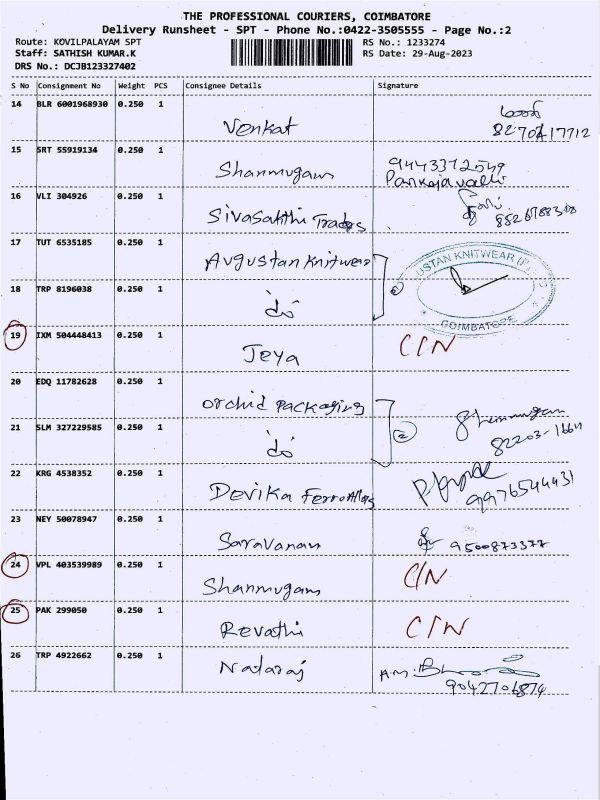 THE PROFESSIONAL COURIERS, COIMBATORE
Delivery Runsheet - SPT - Phone No.:0422-3505555 - Page No.:2
Route: KOVILPALAYAM SPT RS No.: 1233274
Staff: SATHISH KUMAR.K RS Date: 29-Aug-2023
DRS No.: DCJB123327402
S No Consignment No Weight PCS Consignee Details Signature
14 BLR 6001968930 0.250 1
Venkat
15 SRT 55919134 0.250 1
Shanmugam
Pankajavalli
16 VLI 304926 0.250 1
Sivasakthi Traders
17 TUT 6535185 0.250 1
Augustan Knitwear
USTAN KNITWEAR (P)
18 TRP 8196038 0.250 1
do
COIMBATORE
19 IXM 504448413 0.250 1
Jeya C/N
20 EDQ 11782628 0.250 1
Orchid Packaging
21 SLM 327229585 0.250 1
do 2
22 KRG 4538352 0.250 1
Devika Ferro Alloys 9976544431
23 NEY 50078947 0.250 1
Saravanan 9500873377
24 VPL 403539989 0.250 1
Shanmugam C/N
25 PAK 299050 0.250 1
Revathi C/N
26 TRP 4922662 0.250 1
Nataraj
9042706874